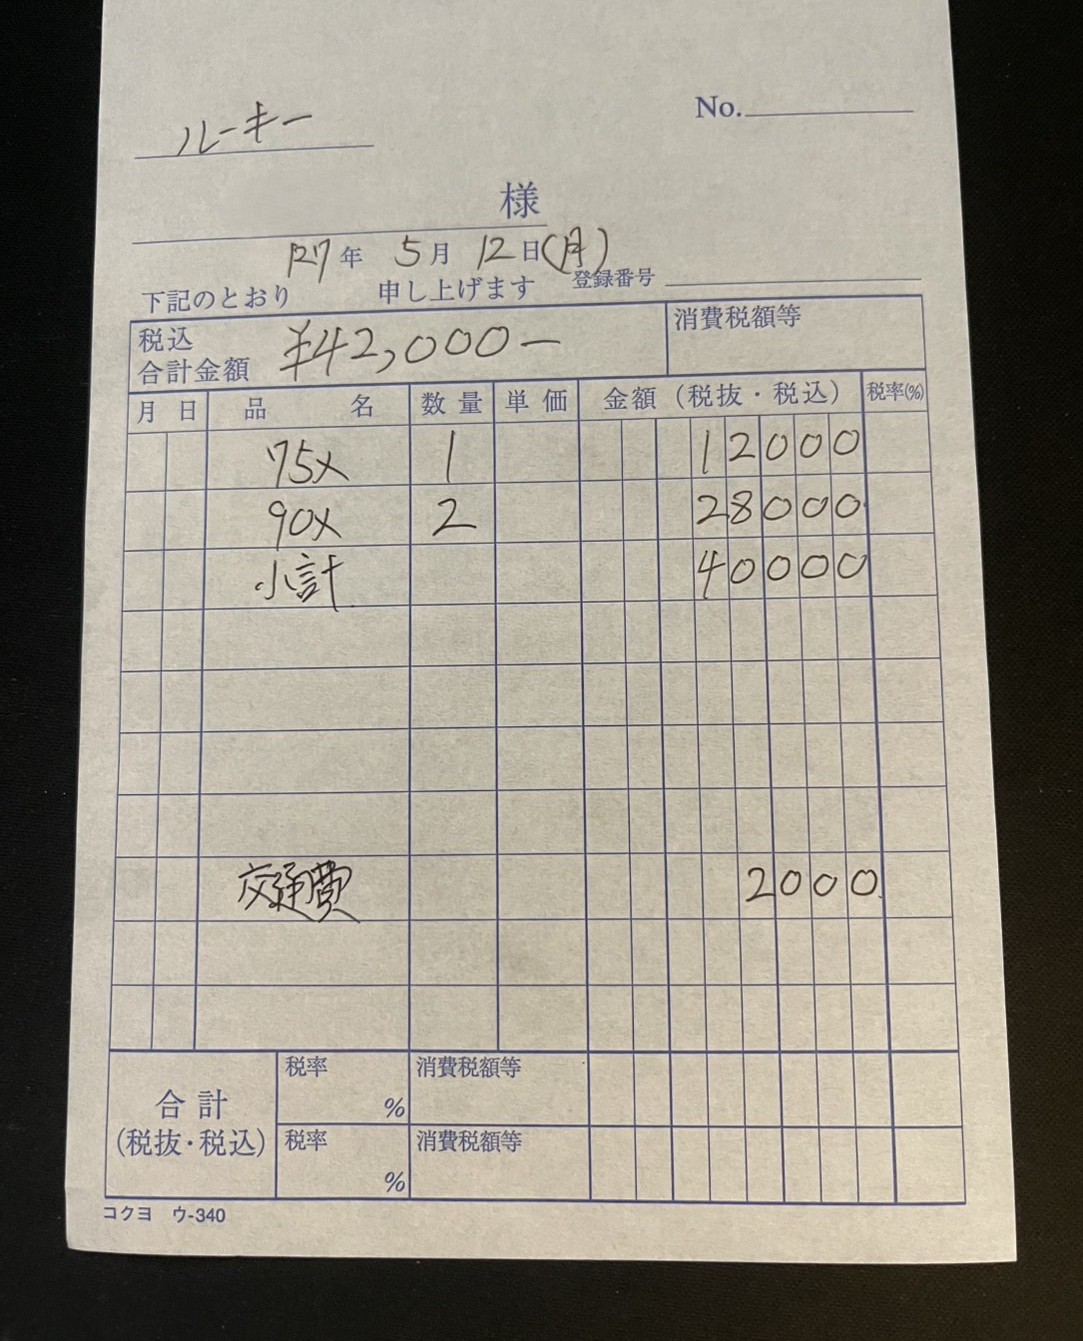 No.
ルーキー
様
R7年 5月 12日(月)
下記のとおり 申し上げます 登録番号
税込合計金額 ¥42,000- 消費税額等
月 日 品 名 数 量 単 価 金額（税抜・税込） 税率(%)
75× 1 12000
90× 2 28000
小計 40000
交通費 2000
合 計 (税抜・税込)
税率 % 消費税額等
税率 % 消費税額等
コクヨ ウ-340